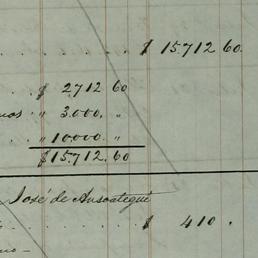 $ 15.712 60.
$ 2712 60
" 3.000. "
" 10000. "
$15,712.60
José de Ansoategui
$ 410.